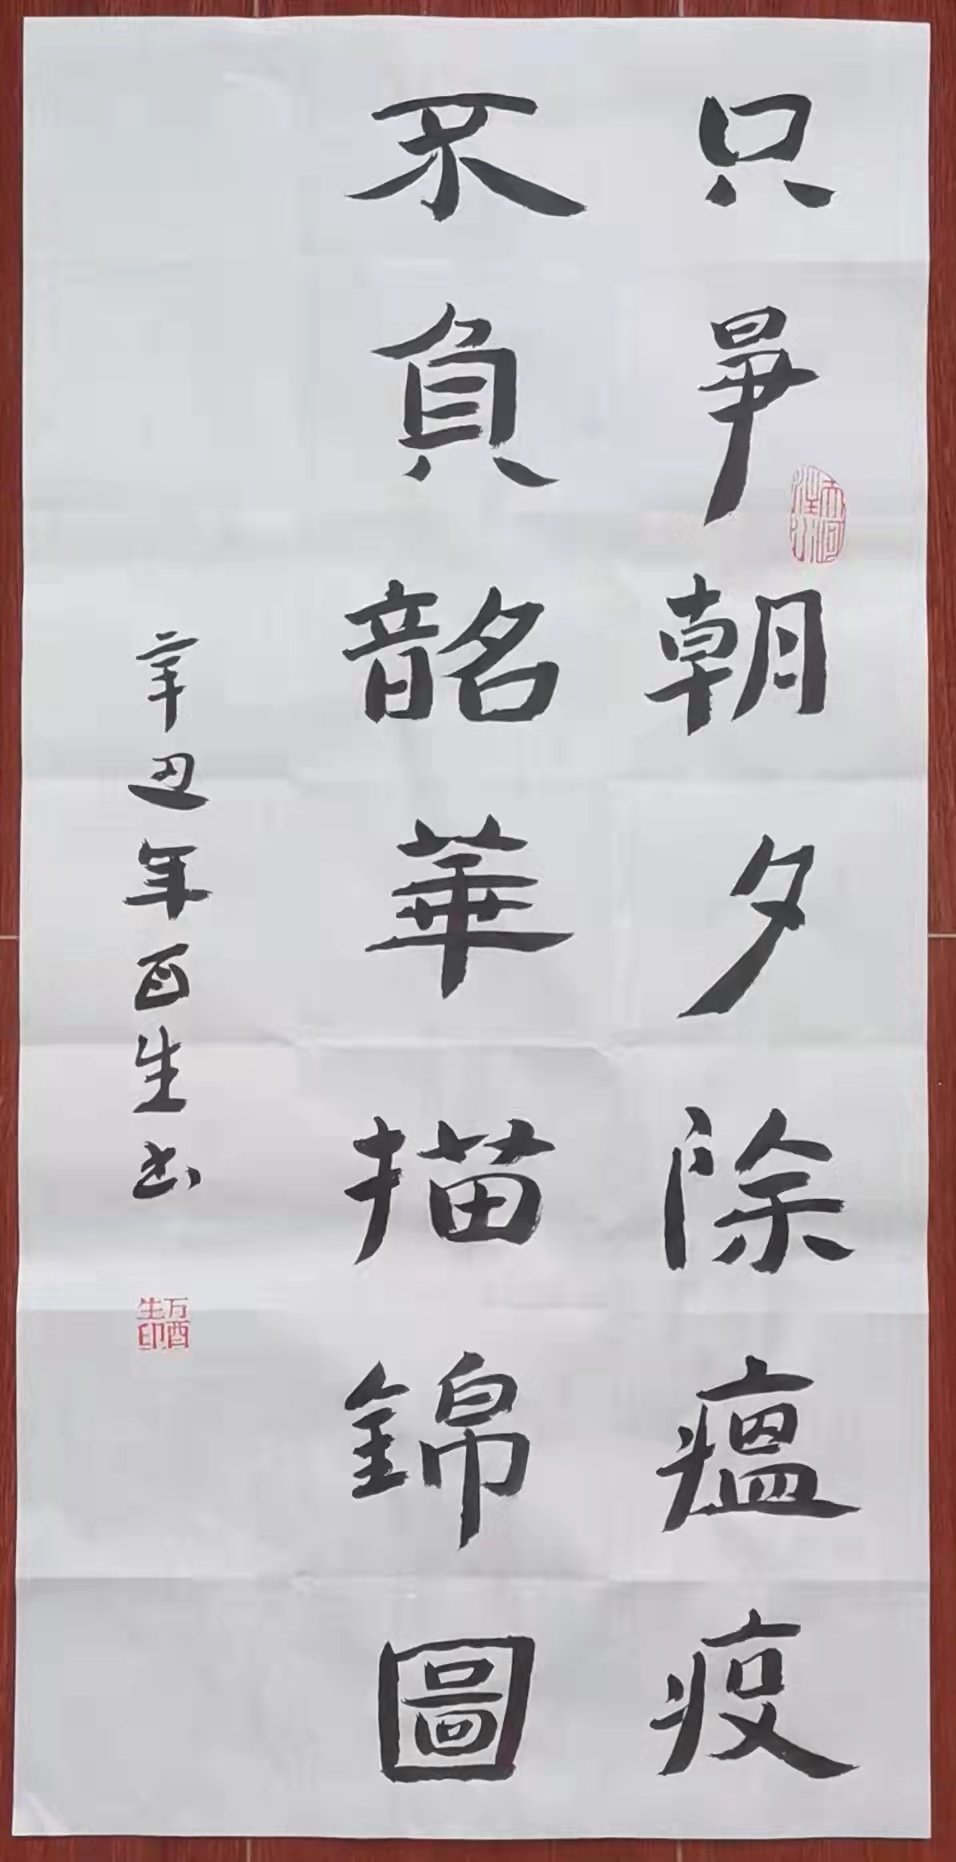 只爭朝夕除瘟疫
不負韶華描錦圖
辛丑年酉生书
万酉生印